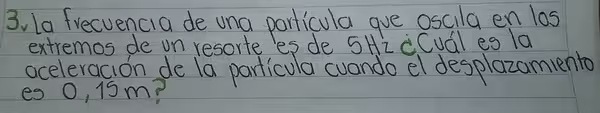 3. La frecuencia de una partícula que oscila en los
extremos de un resorte es de 5Hz ¿Cuál es la
aceleración de la partícula cuando el desplazamiento
es 0,15m?